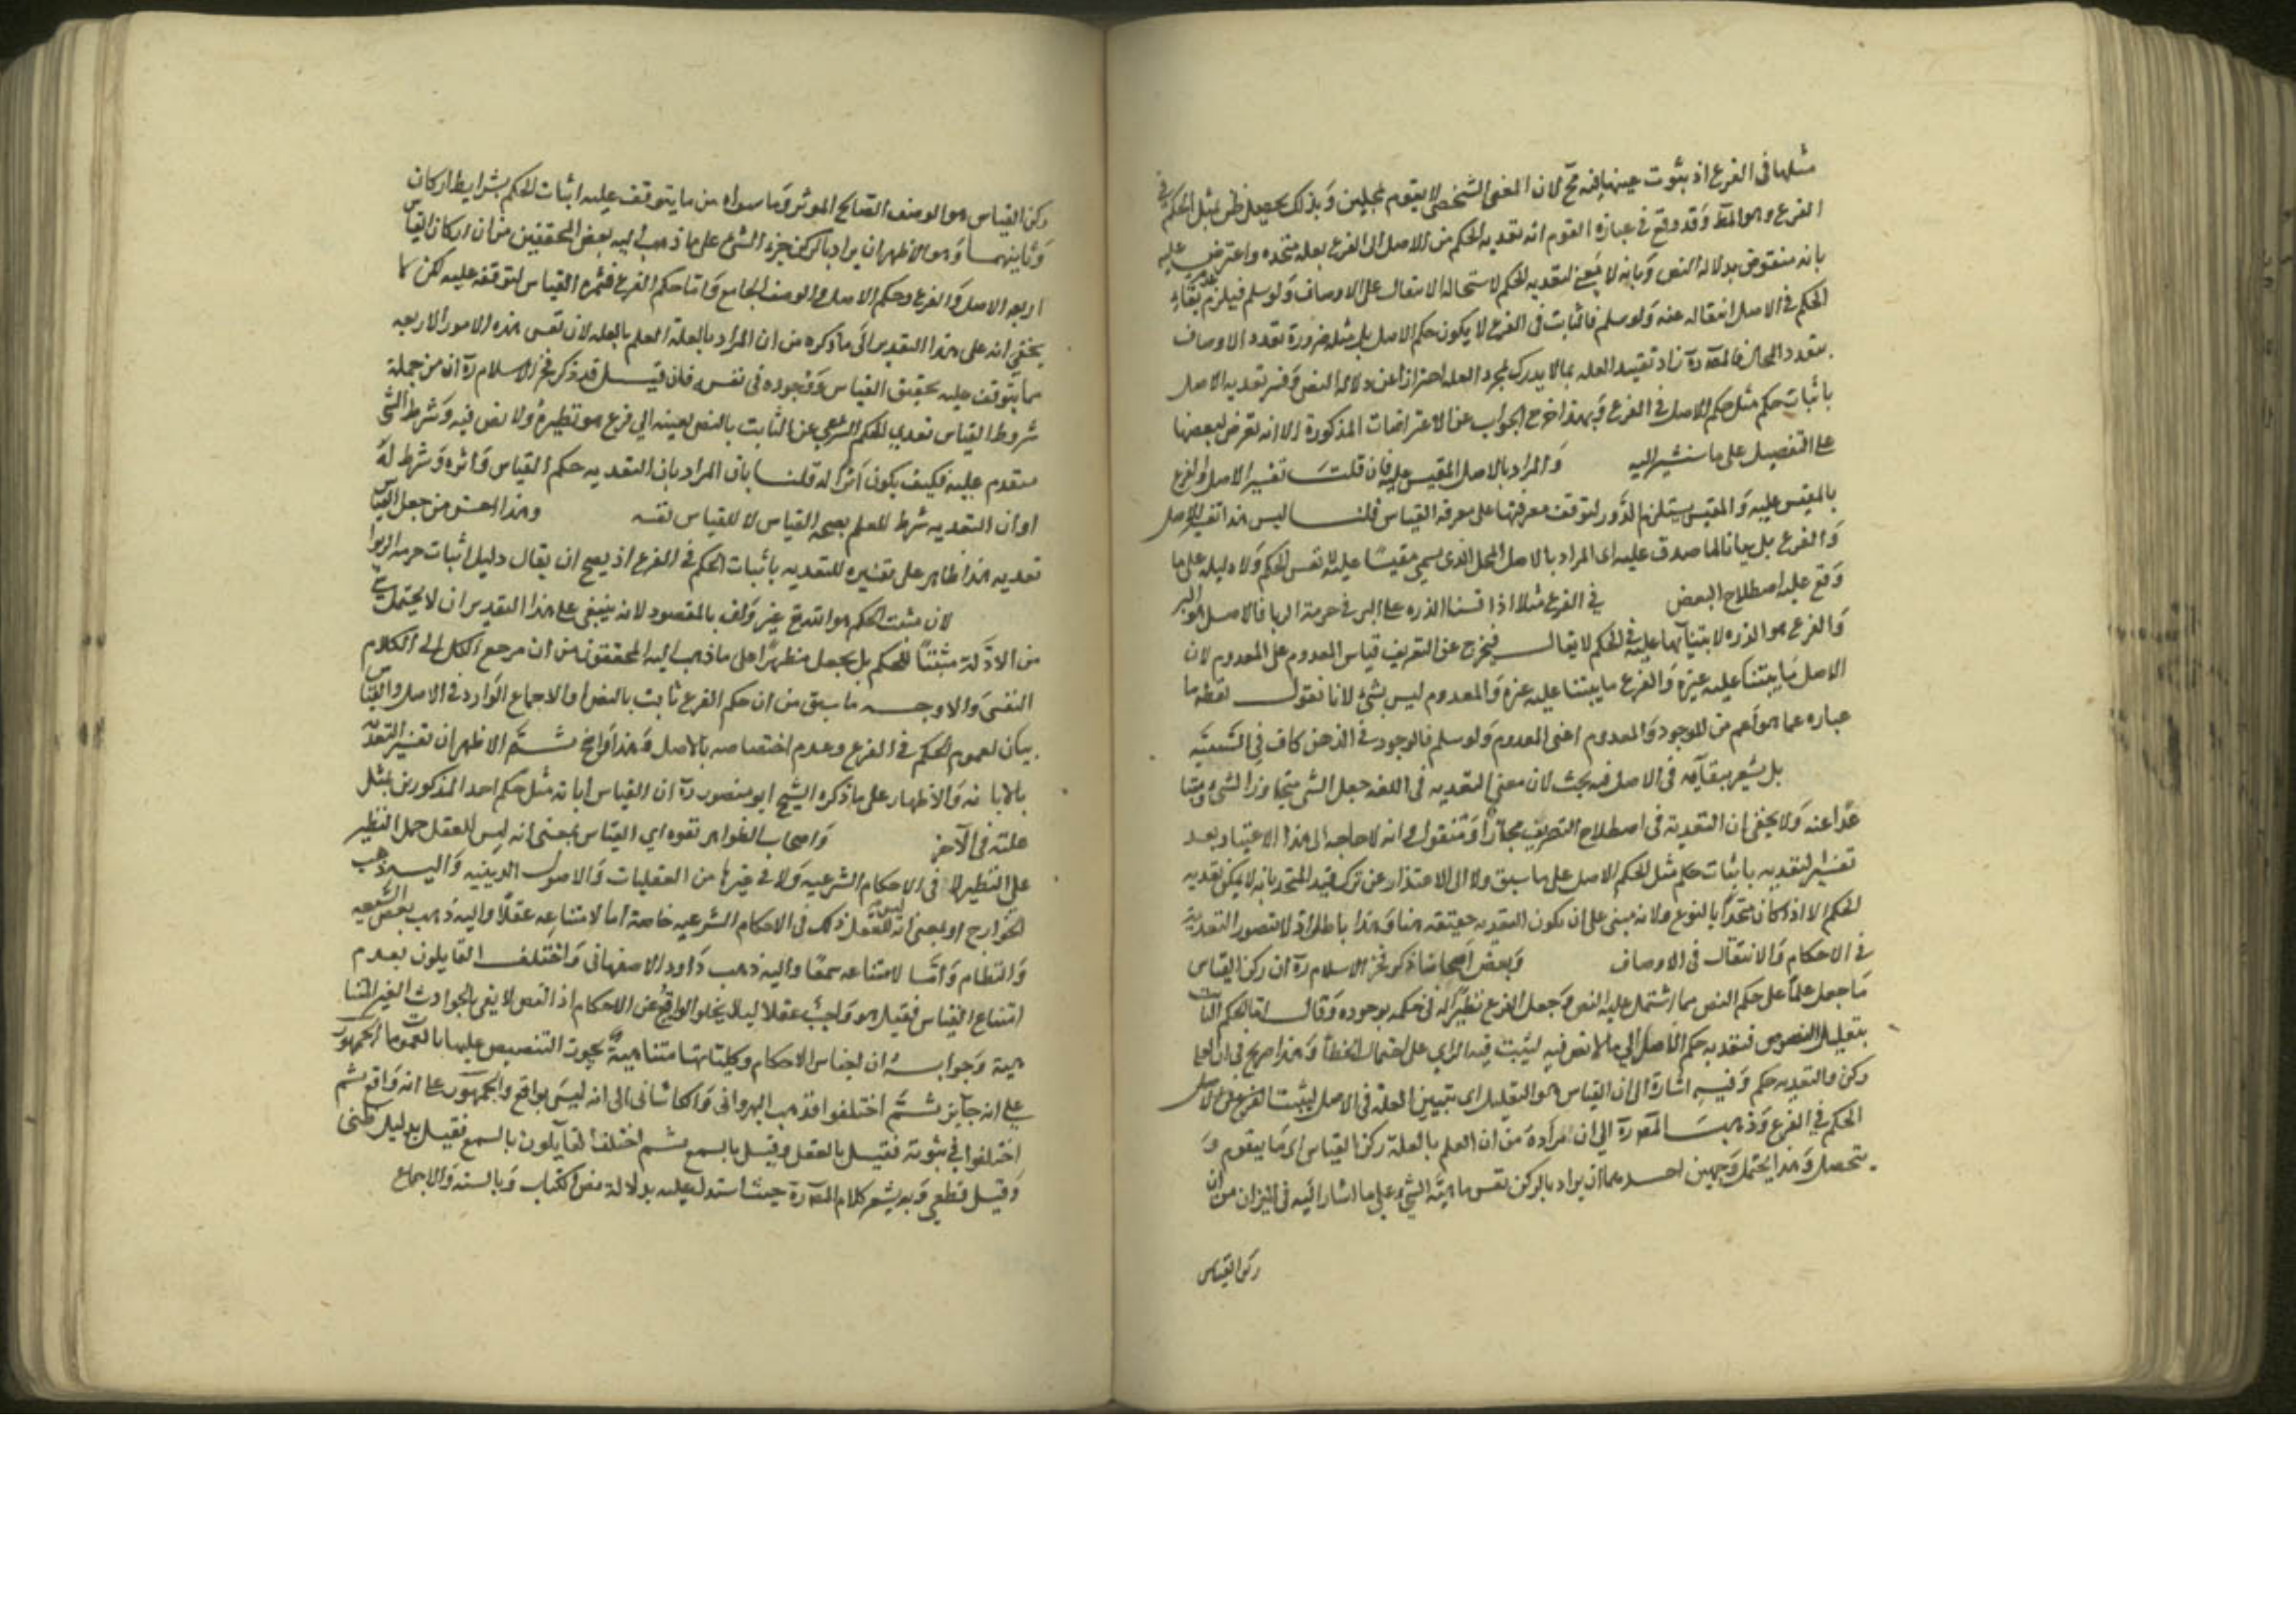 مثلها في الفرع اذ ثبوت عينها فيه مح لان المعنى الشخصي لا يقوم بمحلين وبذلك يحصل ظن مثل الحكم في
الفرع وهو المط وقد وقع في عبارة القوم انه تعدية الحكم من الاصل الى الفرع بعلة متحدة واعترض عليه
بانه منقوض بدلالة النص وبانه لا معنى لتعدية الحكم لاستحالة الانتقال على الاوصاف ولو سلم فيلزم عدم بقاء
الحكم في الاصل لانتقاله عنه ولو سلم فالثابت في الفرع لا يكون حكم الاصل بل مثله ضرورة تعدد الاوصاف
بتعدد المحال فالمص ره زاد تقييد العلة بما لا يدرك بمجرد اللغة احترازا عن دلالة النص وفسر تعدية الاصل
باثبات حكم مثل حكم الاصل في الفرع وبهذا خرج الجواب عن الاعتراضات المذكورة الا انه تعرض لبعضها
على التفصيل على ما سنشير اليه والمراد بالاصل المقيس عليه فان قلت تفسير الاصل والفرع
بالمقيس عليه والمقيس يستلزم الدور لتوقف معرفتها على معرفة القياس قلنا ليس هذا تفسير للاصل
والفرع بل بيانا لما صدق عليه اى المراد بالاصل المحل الذى يسمى مقيسا عليه لا نفس الحكم ولا دليله على ما
وقع عليه اصطلاح البعض في الفرع مثلا اذا قسنا الذرة على البر في حرمة الربا فالاصل هو البر
والفرع هو الذرة لابتنائها عليه في الحكم لا يقال فيخرج عن التعريف قياس المعدوم على المعدوم لان
الاصل ما يبتنا عليه غيره والفرع ما يبتنا عليه غيره والمعدوم ليس بشئ لانا نقول لفظه ما
عبارة عما هو اعم من الموجود والمعدوم اعنى المعلوم ولو سلم فالوجود في الذهن كاف في الشيئية
بل يشعر ببقائه في الاصل فيه بحث لان معنى التعدية في اللغة جعل الشئ متجاوزا الشئ ومتبا
عدا عنه ولا يخفى ان التعدية في اصطلاح التصريف مجاز او منقول وانه لا حاجة الى هذا الاعتبار بعد
تفسير التعدية باثبات حكم مثل الحكم الاصل على ما سبق ولا الى الاعتذار عن ترك قيد المتحد بانه لا يمكن تعدية
الحكم الا اذا كان متحدا بالنوع ولانه مبنى على ان يكون التعدية حقيقة هنا وهذا باطل اذ لا تتصور التعدية
في الاحكام والانتقال في الاوصاف وبعض اصحابنا ذكر فخر الاسلام ره ان ركن القياس
ما جعل علما على حكم النص مما اشتمل عليه النص وجعل الفرع نظيرا له في حكمه بوجوده وقال اما الحكم الثابت
بتعليل النصوص فتعدية حكم الاصل الى ما لا نص فيه ليثبت فيه بالراى على احتمال الخطأ وهذا صريح في ان العلة
ركن والتعدية حكم وفيه اشارة الى ان القياس هو التعليل اى تبيين العلة في الاصل ليثبت
الحكم في الفرع وذهب المص ره الى ان مراده من ان العلم بالعلة ركن القياس اى ما يتقوم و
يتحصل وهذا يحتمل وجهين احدهما ان يراد بالركن نفس ماهية الشئ على ما اشار اليه في الميزان من ان
ركن القياس
ركن القياس هو الوصف الصالح الموثر وما سواه من ما يتوقف عليه اثبات الحكم بشرايط لا ركان
وثانيهما وهو الاظهر ان يراد بالركن جزء الشئ على ما ذهب اليه بعض المحققين من ان اركان القياس
اربعة الاصل والفرع وحكم الاصل والوصف الجامع واما حكم الفرع فثمرة القياس لتوقفه عليه لكن لا
يخفى انه على هذا التقدير الى ما ذكره من ان المراد بالعلة العلم بالعلة لان نفس هذه الامور الاربعة
مما يتوقف عليه تحقيق القياس ووجوده في نفسه فان قيل قد ذكر فخر الاسلام ره ان من جملة
شروط القياس تعدي الحكم الشرعي عن الثابت بالنص بعينه الى فرع هو نظيره ولا نص فيه وشرط الشئ
متقدم عليه فكيف يكون اثرا له قلنا بان المراد بان التعدية حكم القياس واثره وشرط له
او ان التعدية شرط للعلم بصحة القياس لا للقياس نفسه وهذا احسن من جعل القياس
تعدية هذا ظاهر على تفسيره للتعدية باثبات الحكم في الفرع اذ يصح ان يقال دليل اثبات حرمة الربوا
لان مثبت الحكم هو الله تع غير واف بالمقصود لانه ينبغى على هذا التقدير ان لا يجعل شئ
من الادلة مثبتا للحكم بل يجعل مظهرا على ما ذهب اليه المحققون من ان مرجع الكل الى الكلام
النفسى والاوجه ما سبق من ان حكم الفرع ثابت بالنص او الاجماع الوارد في الاصل والقياس
بيان لعموم الحكم في الفرع وعدم اختصاصه بالاصل وهذا واضح ثم الاظهر ان تفسير التعدية
بالابانة والاظهار على ما ذكره الشيخ ابو منصور ره ان القياس ابانة مثل حكم احد المذكورين بمثل
علته في الآخر واصحاب الظواهر نفوه اى القياس بمعنى انه ليس للعقل حمل النظير
على النظير لا في الاحكام الشرعية ولا في غيرها من العقليات والاصول الدينية واليه ذهب
الخوارج او بمعنى انه ليس للعقل ذلك في الاحكام الشرعية خاصة اما لامتناعه عقلا واليه ذهب بعض الشيعة
والنظام واما لامتناعه سمعا واليه ذهب داود الاصفهانى واختلف القايلون بعدم
امتناع القياس فقيل هو واجب عقلا ليلا يخلو الوقايع عن الاحكام اذ النص لا يفى بالحوادث الغير المتنا
هية وجوابه ان اجناس الاحكام وكلياتها متناهية يجوز التنصيص عليها بالعمومات والجمهور
على انه جايز ثم اختلفوا فذهب النهروانى والكاشانى الى انه ليس بواقع والجمهور على انه واقع ثم
اختلفوا في ثبوته فقيل بالعقل وقيل بالسمع ثم اختلف القايلون بالسمع فقيل بدليل ظنى
وقيل قطعى وبه يشعر كلام المص ره حيث استدل عليه بدلالة نص الكتاب وبالسنة والاجماع